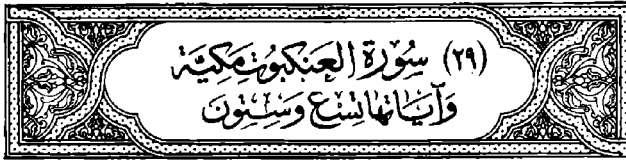 (٢٩) سُورَة العَنكبُوت مَكِيَّة
وَآيَاتهَا تِسْع وَسِتّونَ